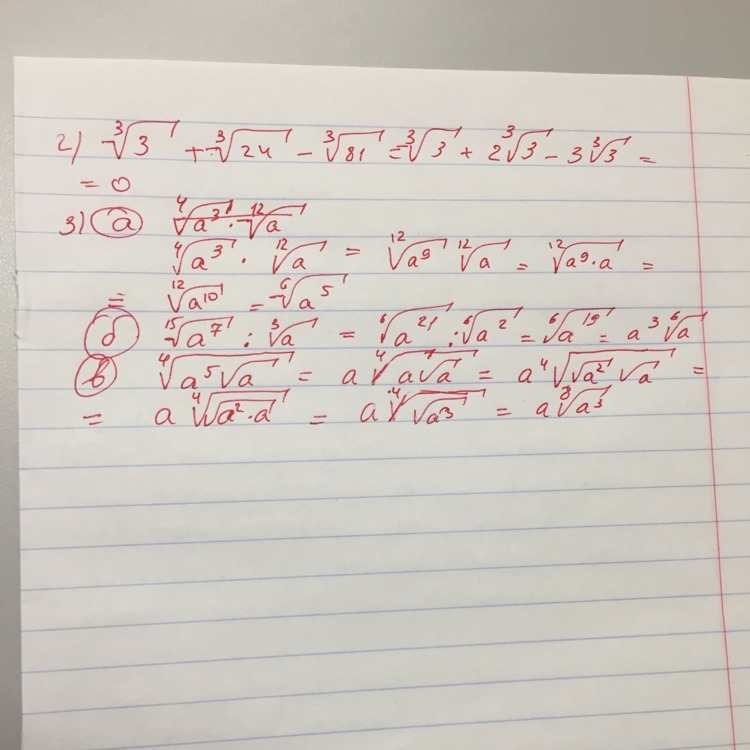 2) ∛3 + ∛24 − ∛81 = ∛3 + 2∛3 − 3∛3 =
= 0
3) а ⁴√a³ · ¹²√a
⁴√(a³) · ¹²√a = ¹²√(a⁹) ¹²√a = ¹²√(a⁹·a) =
= ¹²√(a¹⁰) = ⁶√(a⁵)
б ¹⁵√(a⁷) : ³√a = ⁶√(a²¹) : ⁶√(a²) = ⁶√(a¹⁹) = a³ ⁶√a
в ⁴√(a⁵√a) = a ⁴√(a√a) = a ⁴√(√(a²) √a) =
= a ⁴√(√(a²·a)) = a ⁴√(√(a³)) = a ⁸√(a³)